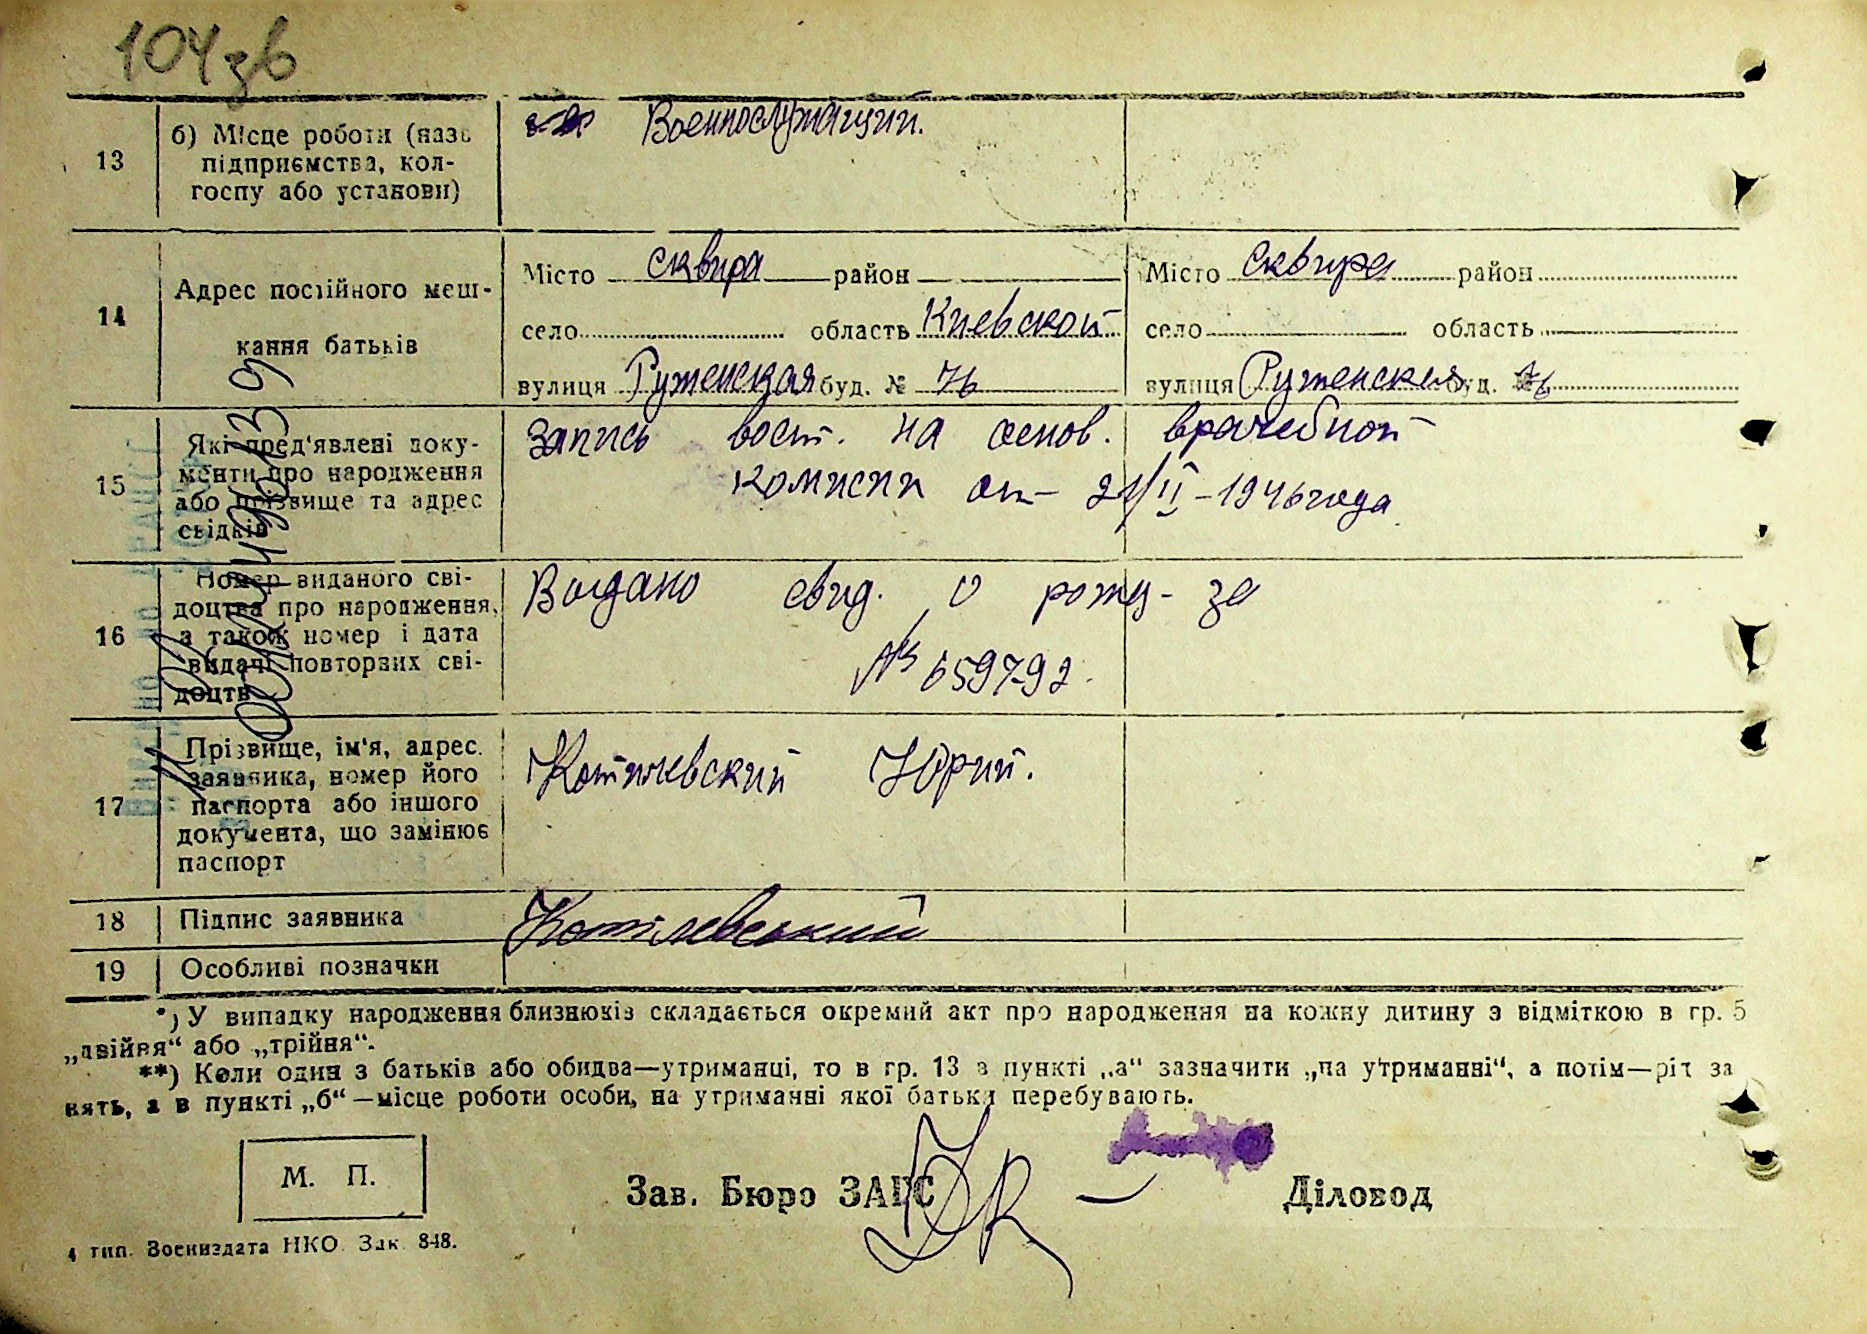 104зв
13
б) Місце роботи (назв
підприємства, кол-
госпу або установи)
Военнослужащий.
14
Адрес постійного меш-
кання батьків
Місто Сквира район
село область Киевской
вулиця Руженская буд. № 76
Місто Сквира район
село область
вулиця Руженская буд. 76
15
Які пред'явлені доку-
менти про народження
або прізвище та адрес
свідків
Запись вост. на основ. врачебной
комисии от 21/II-1946 года
16
Номер виданого сві-
доцтва про народження,
а також номер і дата
видачі повторних сві-
доцтв
Выдано свид. о рожд- за
№ 659792.
17
Прізвище, ім'я, адрес.
заявника, номер його
паспорта або іншого
документа, що замінює
паспорт
Котилевский Юрий.
18
Підпис заявника
Котілевський
19
Особливі позначки
*) У випадку народження близнюків складається окремий акт про народження на кожну дитину з відміткою в гр. 5
„двійня“ або „трійня“.
**) Коли один з батьків або обидва—утриманці, то в гр. 13 в пункті „а“ зазначити „на утриманні“, а потім—рід за
нять, а в пункті „б“—місце роботи особи, на утриманні якої батьки перебувають.
М. П.
Зав. Бюро ЗАГС
Діловод
4 тип. Воениздата НКО. Зак. 848.